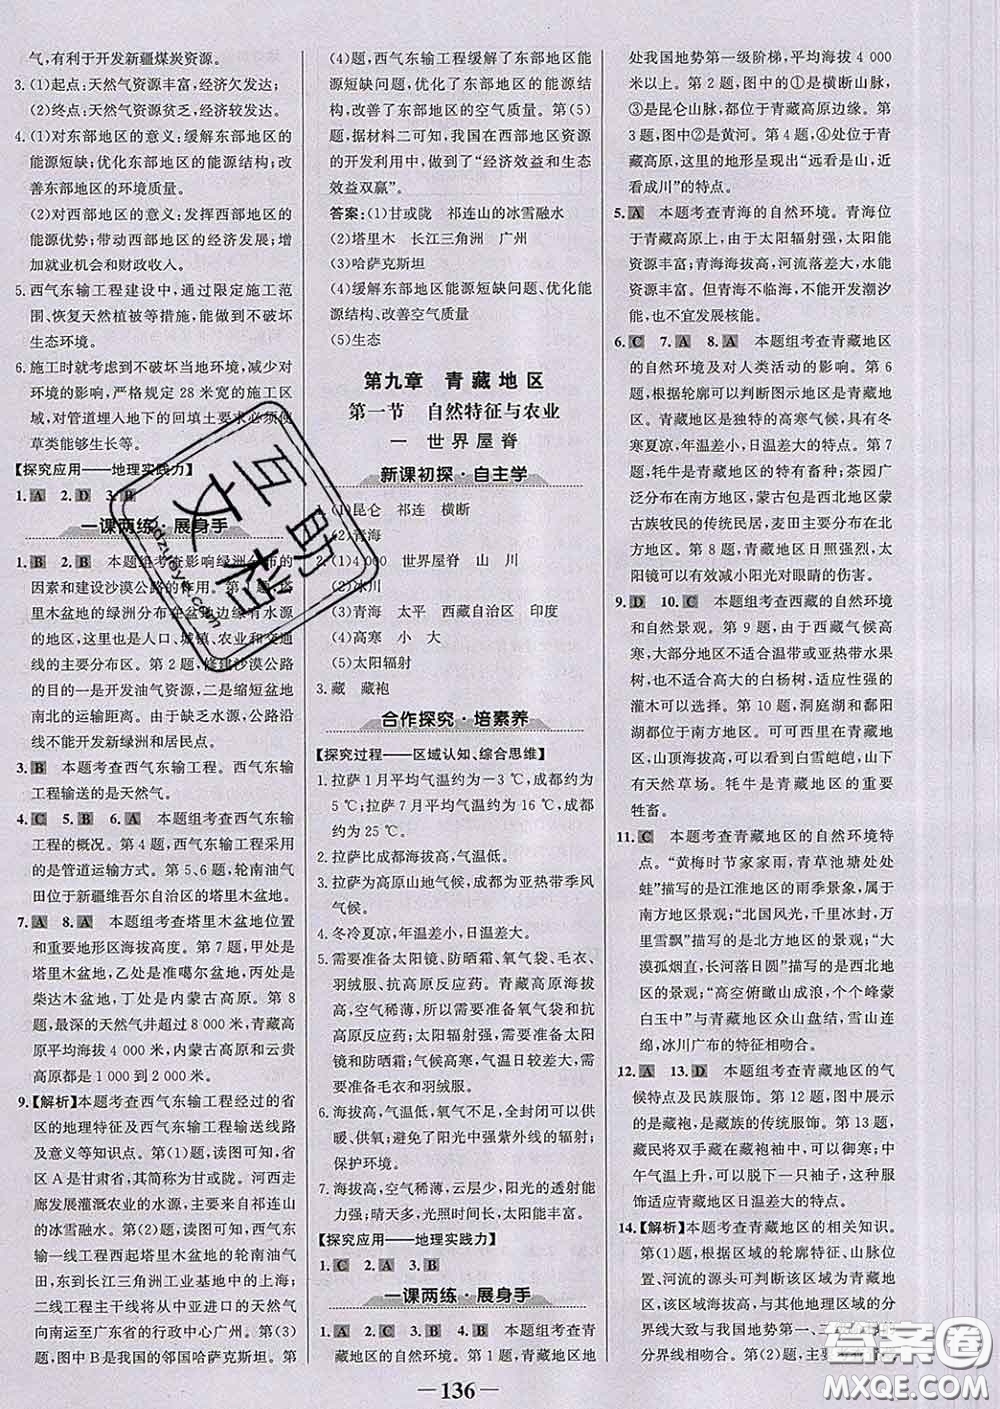 气,有利于开发新疆煤炭资源。
3. (1)起点:天然气资源丰富,经济欠发达;
(2)终点:天然气资源贫乏,经济较发达。
4. (1)对东部地区的意义:缓解东部地区的
能源短缺;优化东部地区的能源结构;改
善东部地区的环境质量。
(2)对西部地区的意义:发挥西部地区的
能源优势;带动西部地区的经济发展;增
加就业机会和财政收入。
5. 西气东输工程建设中,通过限定施工范
围、恢复天然植被等措施,能做到不破坏
生态环境。
6. 施工时就考虑到不破坏当地环境,减少对
环境的影响,严格规定 28 米宽的施工区
域,对管道埋入地下的回填土要求必须使
草类能够生长等。
【探究应用——地理实践力】
1. A 2. D 3. B
一课两练·展身手
1. B 2. B 本题组考查影响绿洲分布的
因素和建设沙漠公路的作用。第 1 题,塔
里木盆地的绿洲分布在盆地边缘有水源
的地方,这里是人口、城镇、农业和交通
线的主要分布区。第 2 题,修建沙漠公路
的目的一是开发油气资源,二是缩短盆地
南北的运输距离。由于缺乏水源,公路沿
线不能开发新绿洲和居民点。
3. B 本题考查西气东输工程。西气东输
工程输送的是天然气。
4. C 5. B 6. A 本题组考查西气东输
工程的概况。第 4 题,西气东输工程采用
的是管道运输方式。第 5、6 题,轮南油气
田位于新疆维吾尔自治区的塔里木盆地。
7. A 8. A 本题组考查塔里木盆地位置
和重要地形区海拔高度。第 7 题,甲处是
塔里木盆地,乙处是准噶尔盆地,丙处是
柴达木盆地,丁处是内蒙古高原。第 8
题,最深的天然气井超过 8 000 米,青藏高
原平均海拔 4 000 米,内蒙古高原和云贵
高原都是 1 000 到 2 000 米。
9. 【解析】本题考查西气东输工程经过的省
区的地理特征及西气东输工程输送线路
及意义等知识点。第(1)题,读图可知,省
区 A 是甘肃省,其简称为甘或陇。河西走
廊发展灌溉农业的水源,主要来自祁连山
的冰雪融水。第(2)题,读图可知,西气东
输一线工程西起塔里木盆地的轮南油气
田,东到长江三角洲工业基地中的上海;
二线工程主干线将从中亚进口的天然气
向南运至广东省的行政中心广州。第(3)
题,图中 B 是我国的邻国哈萨克斯坦。第
(4)题,西气东输工程缓解了东部地区能源
短缺问题,优化了东部地区的能源结构,
改善了东部地区的空气质量。第(5)
题,据材料二可知,我国在西部地区资源
的开发利用中,做到了“经济效益和生态
效益双赢”。
答案:(1)甘或陇 祁连山的冰雪融水
(2)塔里木 长江三角洲 广州
(3)哈萨克斯坦
(4)缓解东部地区能源短缺问题、优化能
源结构、改善空气质量
(5)生态
第九章 青藏地区
第一节 自然特征与农业
一 世界屋脊
新课初探·自主学
1. (1)昆仑 祁连 横断
(2)青海
2. (1)4 000 世界屋脊 山 川
(2)冰川
(3)青海 太平 西藏自治区 印度
(4)高寒 小 大
(5)太阳辐射
3. 藏 藏袍
合作探究·培素养
【探究过程——区域认知、综合思维】
1. 拉萨 1 月平均气温约为-3 ℃,成都约为
5 ℃;拉萨 7 月平均气温约为 16 ℃,成都
约为 25 ℃。
2. 拉萨比成都海拔高,气温低。
3. 拉萨为高原山地气候,成都为亚热带季风
气候。
4. 冬冷夏凉,年温差小,日温差大。
5. 需要准备太阳镜、防晒霜、氧气袋、毛衣、
羽绒服、抗高原反应药。青藏高原海拔
高,空气稀薄,所以需要准备氧气袋和抗
高原反应药;太阳辐射强,需要准备太阳
镜和防晒霜;气温低且日温差较大,需要
准备毛衣和羽绒服。
6. 海拔高,气温低,氧气不足,全封闭可以供
暖、供氧;避免了阳光中强紫外线的辐射;
保护环境。
7. 海拔高,空气稀薄,云层少,阳光的透射能
力强;晴天多,光照时间长,太阳能丰富。
【探究应用——地理实践力】
1. C 2. A 3. B
一课两练·展身手
1. A 2. C 3. B 4. B 本题组考查青
藏地区的自然环境。第 1 题,青藏地区地
处我国地势第一级阶梯,平均海拔 4 000
米以上。第 2 题,图中的①是横断山脉,
③是昆仑山脉,二者是青藏高原边缘。第
3 题,图中②为黄河。第 4 题,④处位于青
藏高原,这里的地形呈现出“远看是山,近
看成川”的特点。
5. A 本题考查青海的自然环境。青海位
于青藏高原上,由于太阳辐射强,太阳能
资源丰富;青海海拔高,河流落差大,水能
资源丰富。但青海不临海,不能开发潮汐
能,也不宜发展核能。
6. C 7. A 8. A 本题组考查青藏地区
的自然环境及对人类活动的影响。第 6
题,根据轮廓可以判断图示地区为青藏地
区。青藏地区是独特的高寒气候,具有
冬寒夏凉,年温差小,日温差大的特点。第 7
题,牦牛是青藏地区的特有畜种;茶园广
泛分布在南方地区,蒙古包是内蒙古地区
蒙古族牧民的传统民居,麦田主要分布在
北方地区。第 8 题,青藏地区日照强烈,太
阳镜可以有效减小阳光对眼睛的伤害。
9. D 10. C 本题组考查西藏的自然环境
和自然景观。第 9 题,由于西藏气候高
寒,大部分地区不适合温带或亚热带果
树,也不适合高大的白杨树,适应性强的
灌木可以选择。第 10 题,洞庭湖和鄱阳
湖都没有雪山。可可西里有白雪皑皑,也
有天然草场。牦牛是青藏地区的重要
牲畜。
11. C 本题考查青藏地区的自然环境特
点。“黄梅时节家家雨,青草池塘处处
蛙”描写的是江淮地区的雨季景象,属于
南方地区。“北国风光,千里冰封,万里
雪飘”描写的是北方地区的景观;“大
漠孤烟直,长河落日圆”描写的是西北地
区的景观;“高空俯瞰山成浪,个个峰蒙
白玉中”与青藏地区众山盘结,雪山连
绵,冰川广布的特征相吻合。
12. A 13. D 本题组考查青藏地区的气
候特点及民族服饰。第 12 题,图中展示
的是藏袍,是藏族的传统服饰。第 13 题,
藏民将双手藏在藏袍袖中,可以御寒;中
午气温过高,可以脱下一只袖子,这种服
饰适应青藏地区日温差大的特点。
14. 【解析】本题考查青藏地区的相关知识。
第(1)题,根据区域的轮廓特征、山脉位
置、河流的源头可判断该区域为青藏地
区。该区域与其他地理区域的分界线
大致与我国地势第一、二
分界线相吻合。第(2)题,
136
互助文档
hdzuoye.com
答案圈
MXQE.COM